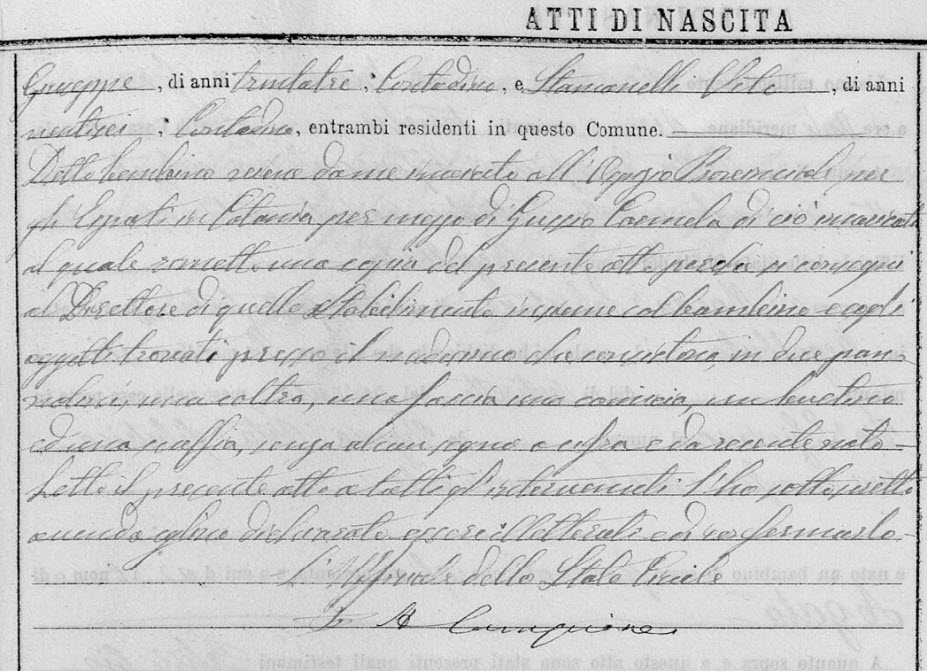 ATTI DI NASCITA
Giuseppe, di anni trentatre, Contadino, e Stancanelli Vito, di anni
ventisei, Contadino, entrambi residenti in questo Comune.
Detto bambino viene da me inviato all'Ospizio per
gli Esposti in Catania per mezzo di Carmela di ciò incaricata
al quale rimetto una copia del presente atto perchè si consegni
al Direttore di quello Stabilimento insieme col bambino e cogli
oggetti trovati presso il medesimo che consistono, in due pan-
nolini, una coltra, una fascia una camicia, un bustino
ed una cuffia, senza alcun segno o cifra e da recente nato
Letto il presente atto a tutti gl'intervenuti l'ho sottoscritto
avendo eglino dichiarato essere illetterati e di confermarlo
L'Uffiziale dello Stato Civile
Campione